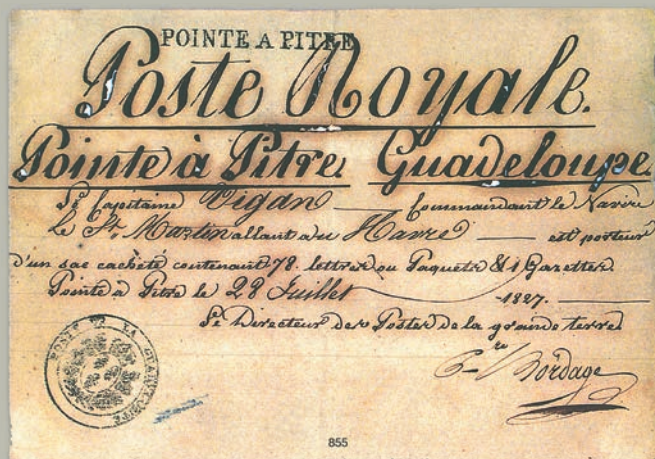 POINTE A PITRE
Poste Royale.
Pointe à Pitre Guadeloupe
Le Capitaine Vigan — Commandant le Navire
Le St. Martin allant au Havre — est porteur
d'un sac cacheté contenant 78. lettres ou Paquets & 1 Gazettes.
Pointe à Pitre le 28 Juillet 1827.
Le Directeur des Postes de la grande terre
Bordage
POSTE DE LA GUADELOUPE
855